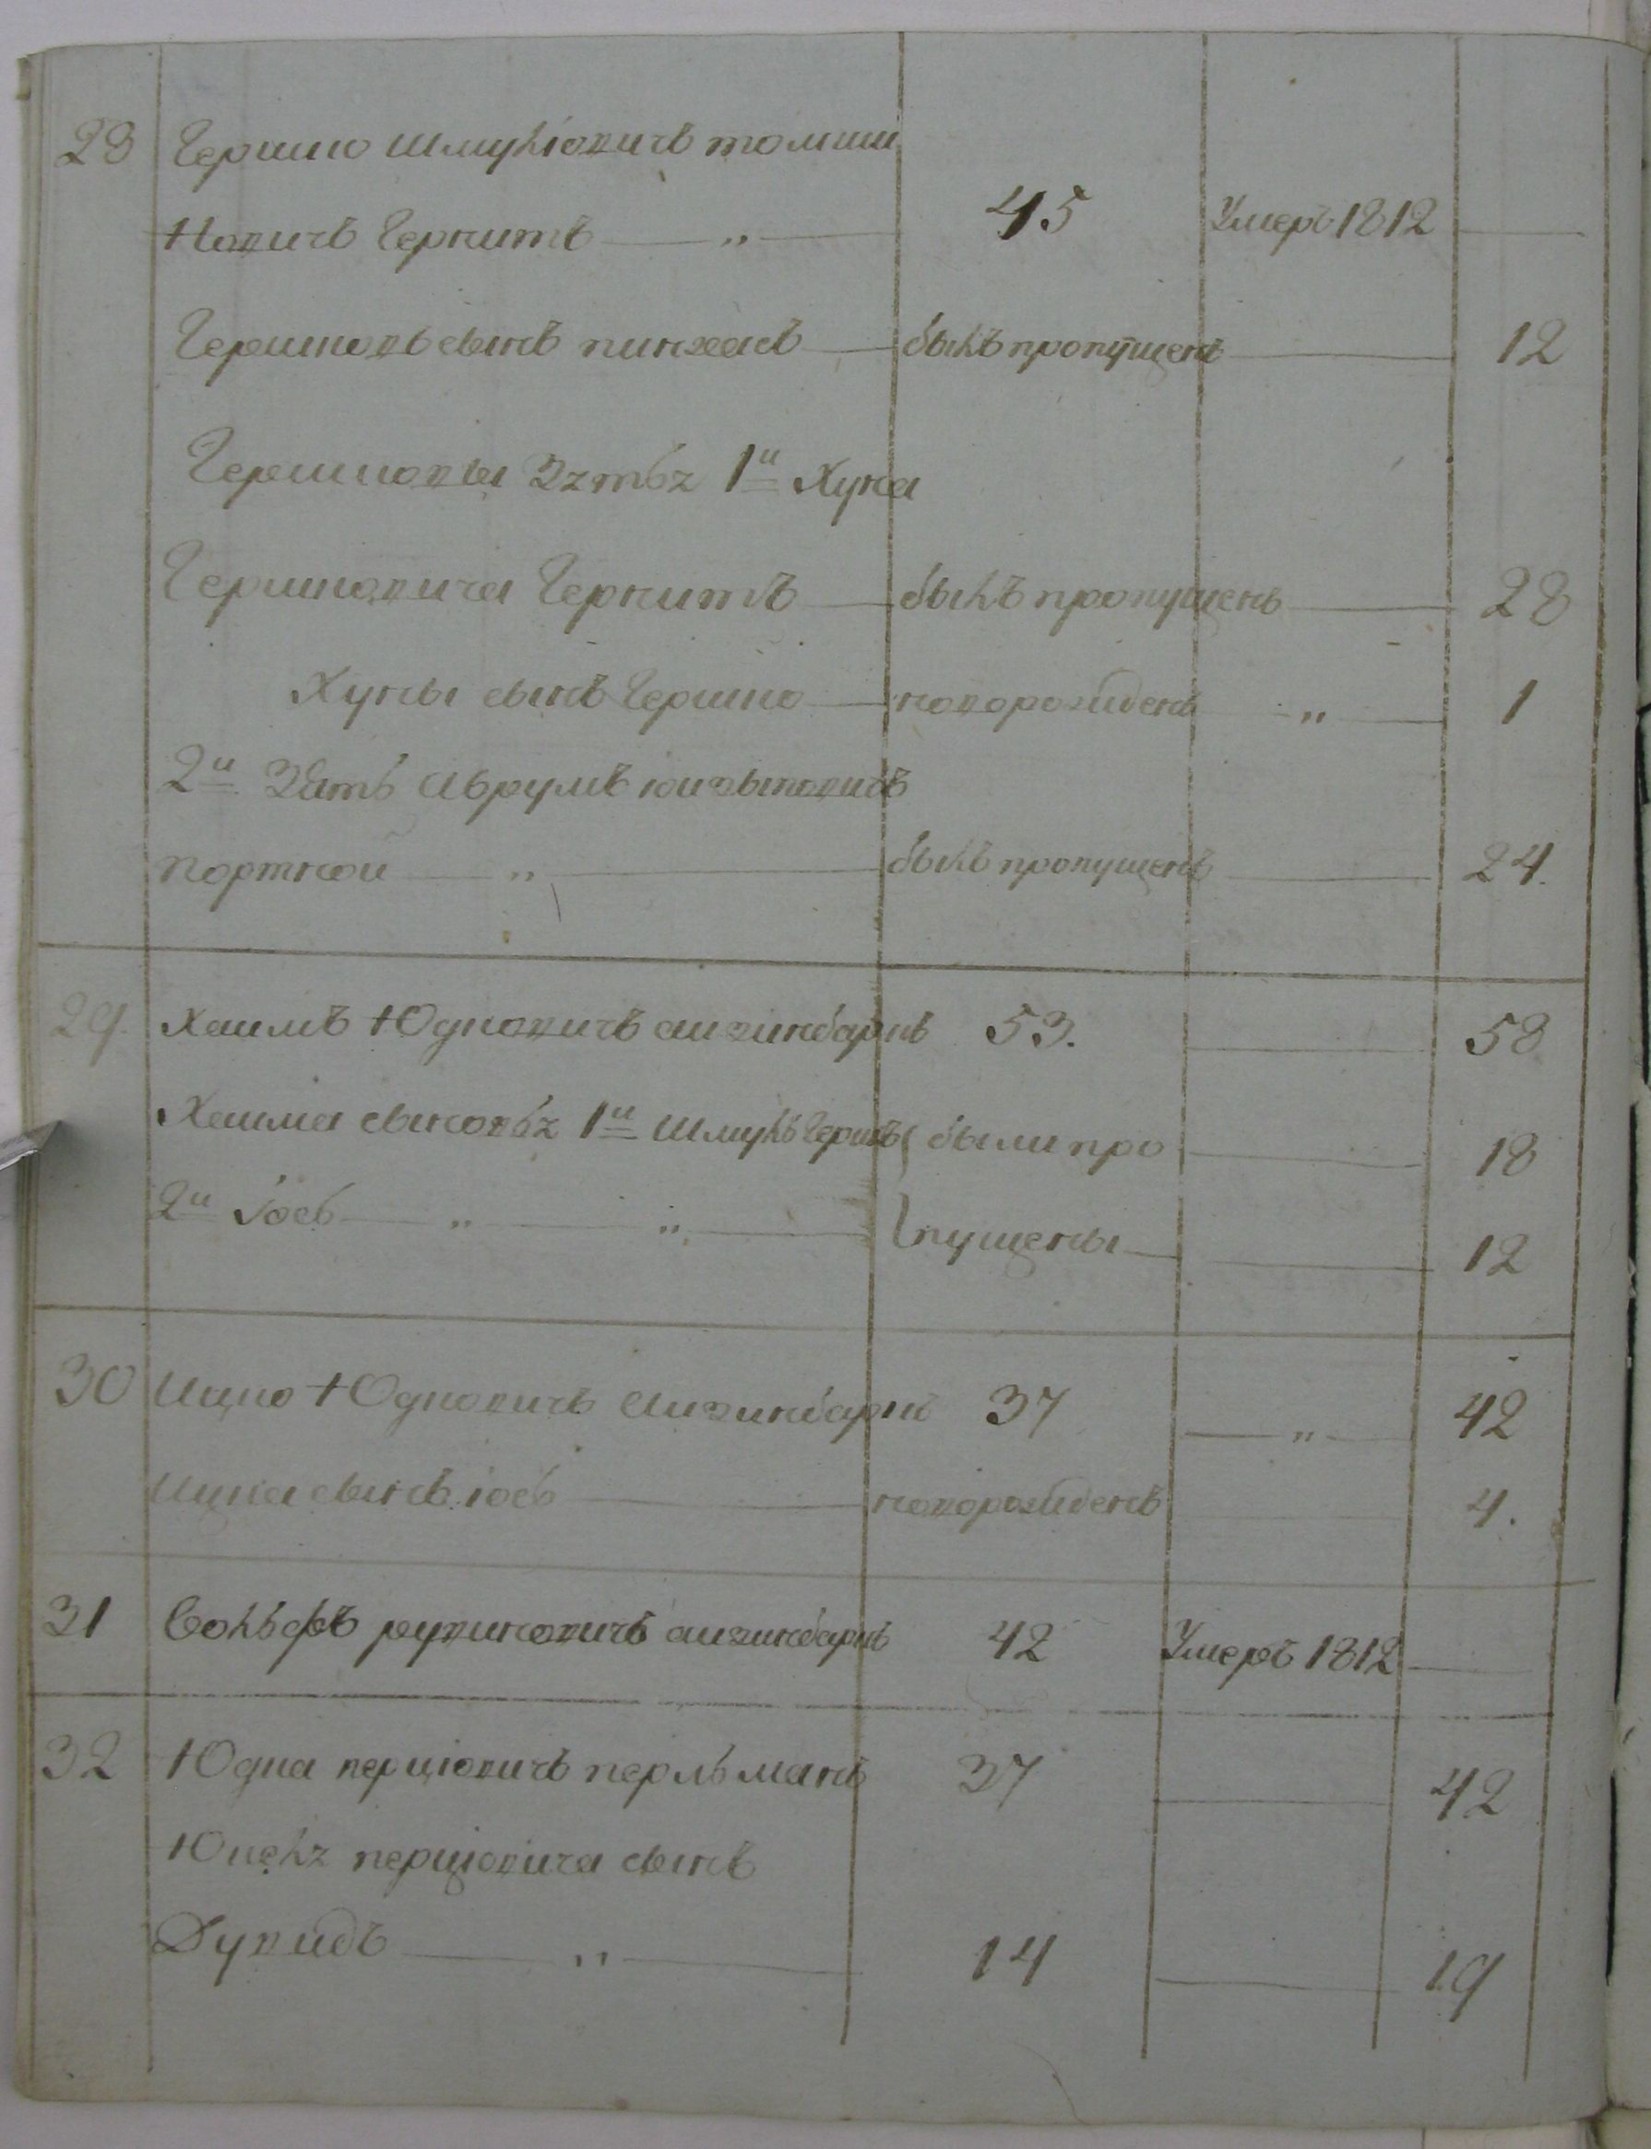 28 Гершко Шмулiовичъ томши
Новичъ Гернитъ — „ — 45 Умеръ 1812 —
Гершковъ сынъ пинхасъ — былъ пропущенъ — 12
Гершковы Зятья 1й Хуна
Гершковича Гернитъ — былъ пропущенъ — 28
Хуны сынъ Гершко — новорожденъ — „ — 1
2й Зять Аврумъ
портной — „ — былъ пропущенъ — 24.
29. Хаимъ Юдковичъ аизинбаркъ 53. — 58
Хаима сыновья 1й Шмуль Гершъ { были про — 18
2й Iосъ — „ — „ — { пущены — 12
30 Ицко Юдковичъ Аизинбаркъ 37 — „ — 42
Ицка сынъ iосъ — новорожденъ — 4.
31 Вольфъ рувиновичъ аизинбаркъ 42 Умеръ 1812 —
32 Юдка перцiовичъ перльманъ 37 — 42
перцiовича сынъ
Дувидъ — „ — 14 — 19